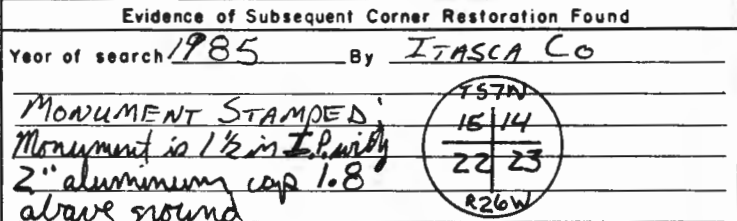 Evidence of Subsequent Corner Restoration Found
Year of search 1985 By ITASCA CO
MONUMENT STAMPED;
Monument is 1 1/2 in I.P. with
2" aluminum cap 1.8
above ground
T57N
15 14
22 23
R26W